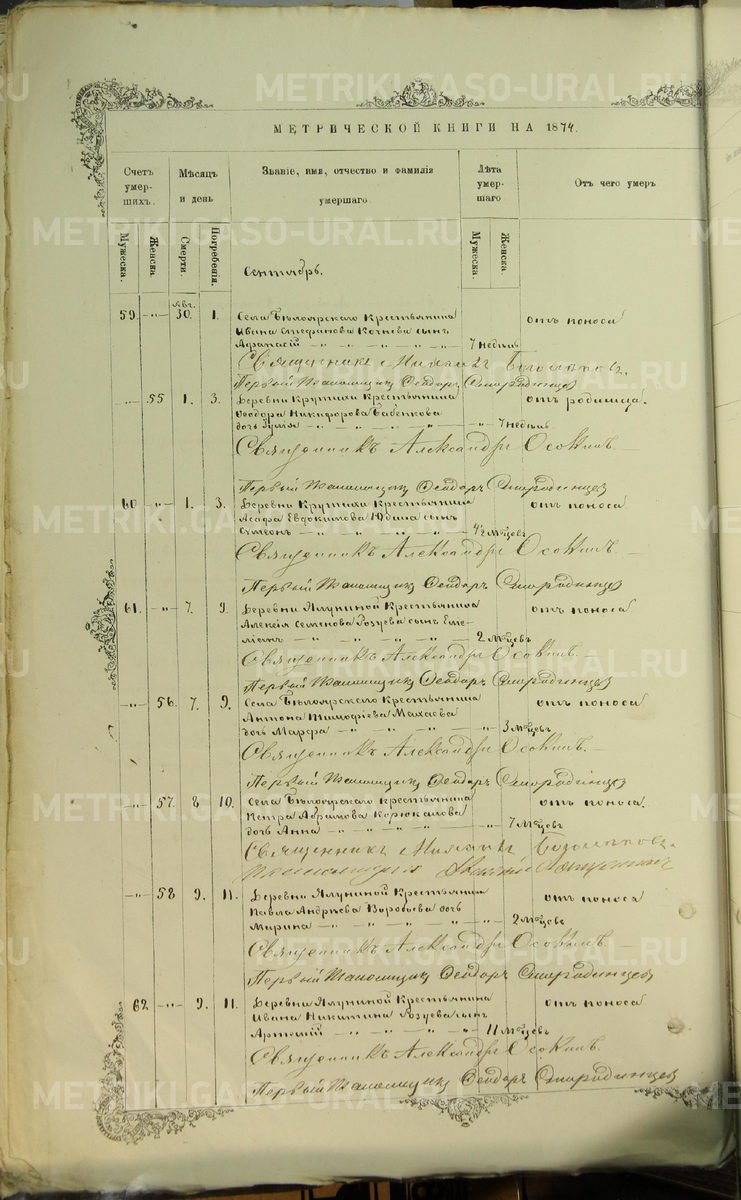 METRIKI.GASO-URAL.RU
МЕТРИЧЕСКОЙ КНИГИ НА 1874.
Счетъ умершихъ.
Мѣсяцъ и день
Званіе, имя, отчество и фамилія умершаго
Лѣта умершаго
Отъ чего умеръ
Мужеска.
Женска
Смерти.
Погребенія.
Мужеска.
Женска.
Сентябрь.
Авг.
59. -"- 30. 1. Села Бѣлоярскаго Крестьянина отъ поноса
Ивана Стефанова Кочнева сынъ
Афанасій 7 недѣль
Священникъ
Первый Псаломщикъ Феодоръ Смородинцев
-"- 55 1. 3. Деревни Крутихи Крестьянина отъ родимца.
Ѳеодора Никифорова Бабенкова
дочь Іулія 7 недѣль
Священникъ Александръ Осокинъ
Первый Псаломщикъ Феодоръ Смородинцев
60 -"- 1. 3. Деревни Крутихи Крестьянина отъ поноса
Іоасафа Евдокимова Юдина сынъ
Симеонъ 4½ Мѣсяцевъ
Священникъ Александръ Осокинъ
Первый Псаломщикъ Феодоръ Смородинцев
61. -"- 7. 9. Деревни Ялуниной Крестьянина отъ поноса
Алексія Семенова сынъ Еме-
ліанъ 2 Мѣсяцевъ
Священникъ Александръ Осокинъ.
Первый Псаломщикъ Феодоръ Смородинцев
-"- 56. 7. 9. Села Бѣлоярскаго Крестьянина отъ поноса
Антона Тимофѣева Махаева
дочь Марфа 3 Мѣсяцевъ
Священникъ Александръ Осокинъ.
Первый Псаломщикъ Феодоръ Смородинцев
-"- 57. 8 10. Села Бѣлоярскаго крестьянина отъ поноса.
Петра Абрамова Корюкалова
дочь Анна 7 Мѣсяцевъ
Священникъ
-"- 58 9. 11. Деревни Ялуниной Крестьянина отъ поноса
Павла Андрѣева Воробьева дочь
Марина 2 Мѣсяцевъ
Священникъ Александръ Осокинъ
Первый Псаломщикъ Феодоръ Смородинцев
62 -"- 9. 11. Деревни Ялуниной Крестьянина отъ поноса
Ивана Никитина сынъ
Артемій 11 Мѣсяцевъ
Священникъ Александръ Осокинъ.
Первый Псаломщикъ Феодоръ Смородинцев